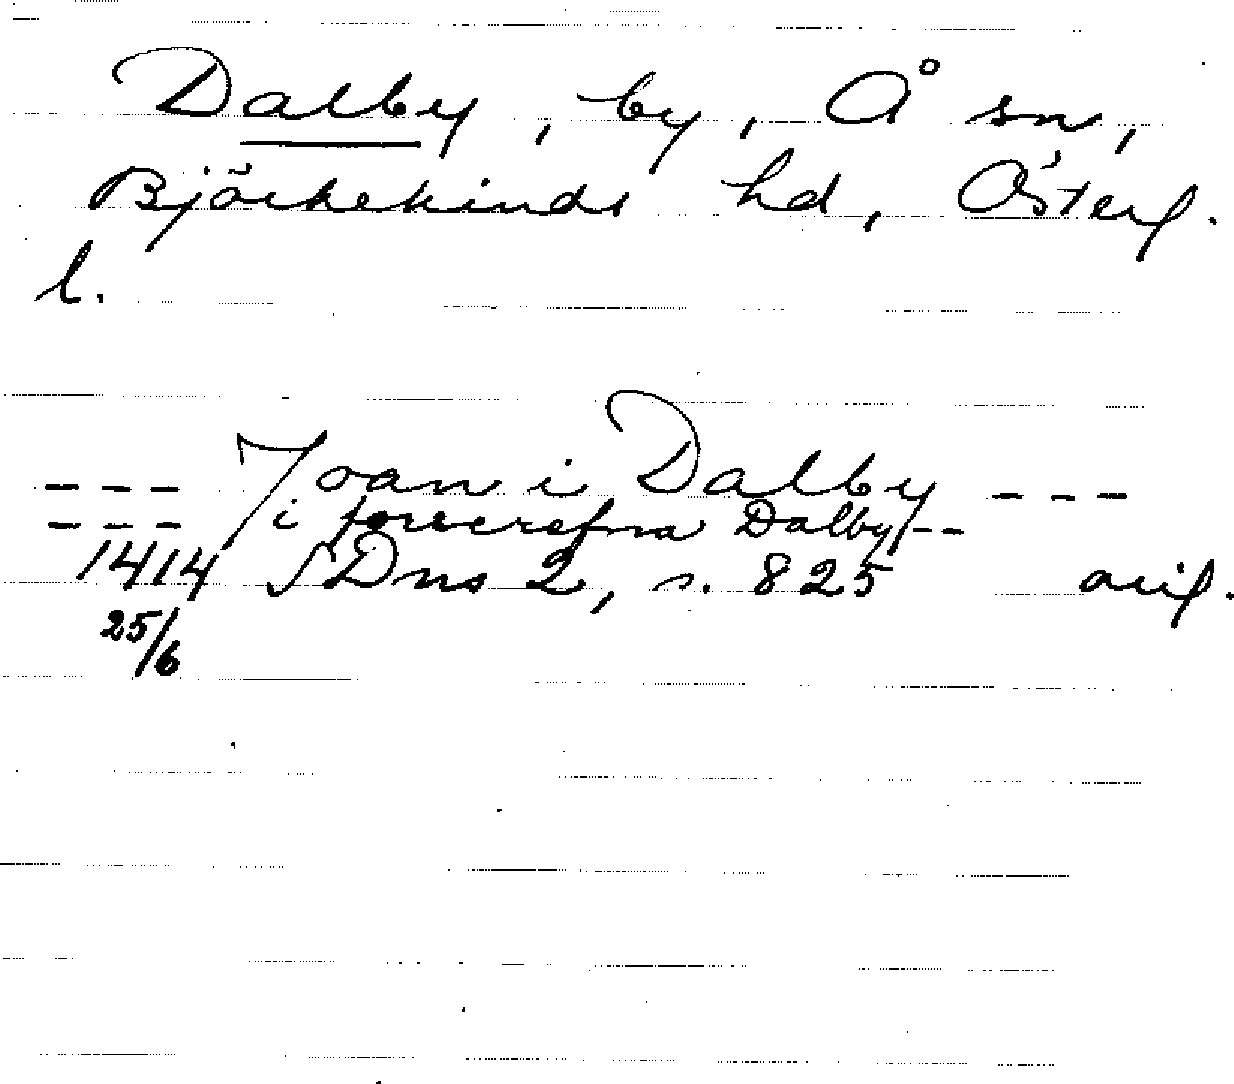 Dalby, by, Å sn,
Björkekinds hd, Österg.
l.
--- Joan i Dalby ---
--- i forscrefna Dalby --
1414 SDns 2, s. 825 orig.
25/6